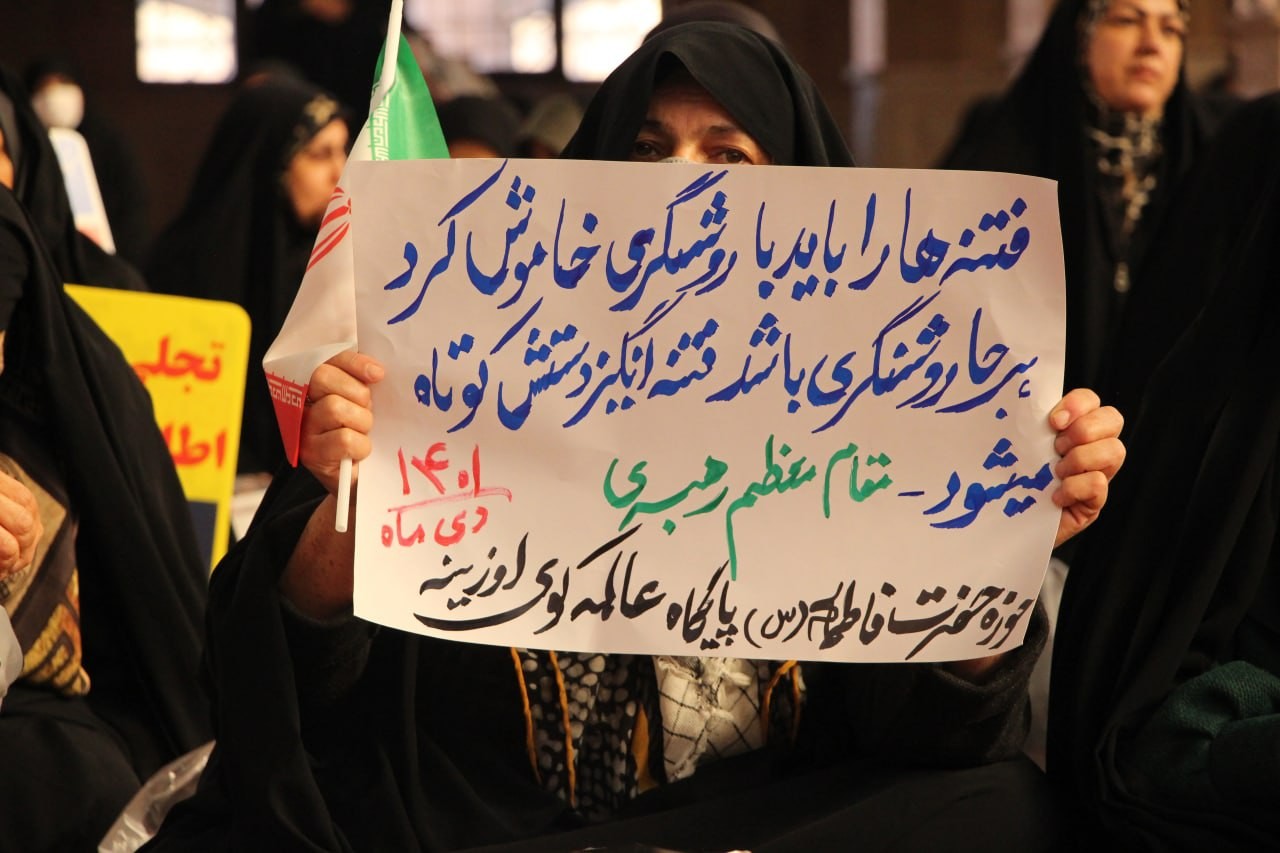 فتنه ها را باید با روشنگری خاموش کرد
هر جا روشنگری باشد فتنه انگیز دستش کوتاه
میشود - مقام معظم رهبری
دی ماه ۱۴۰۱
حوزه حضرت فاطمه (س) پایگاه عالمه کوی اوزینه
تجلی